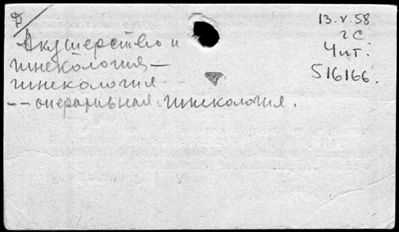 13.V.58
2С
Чит.
516166.
Акушерство и
гинекология —
гинекология.
-- оперативная гинекология.